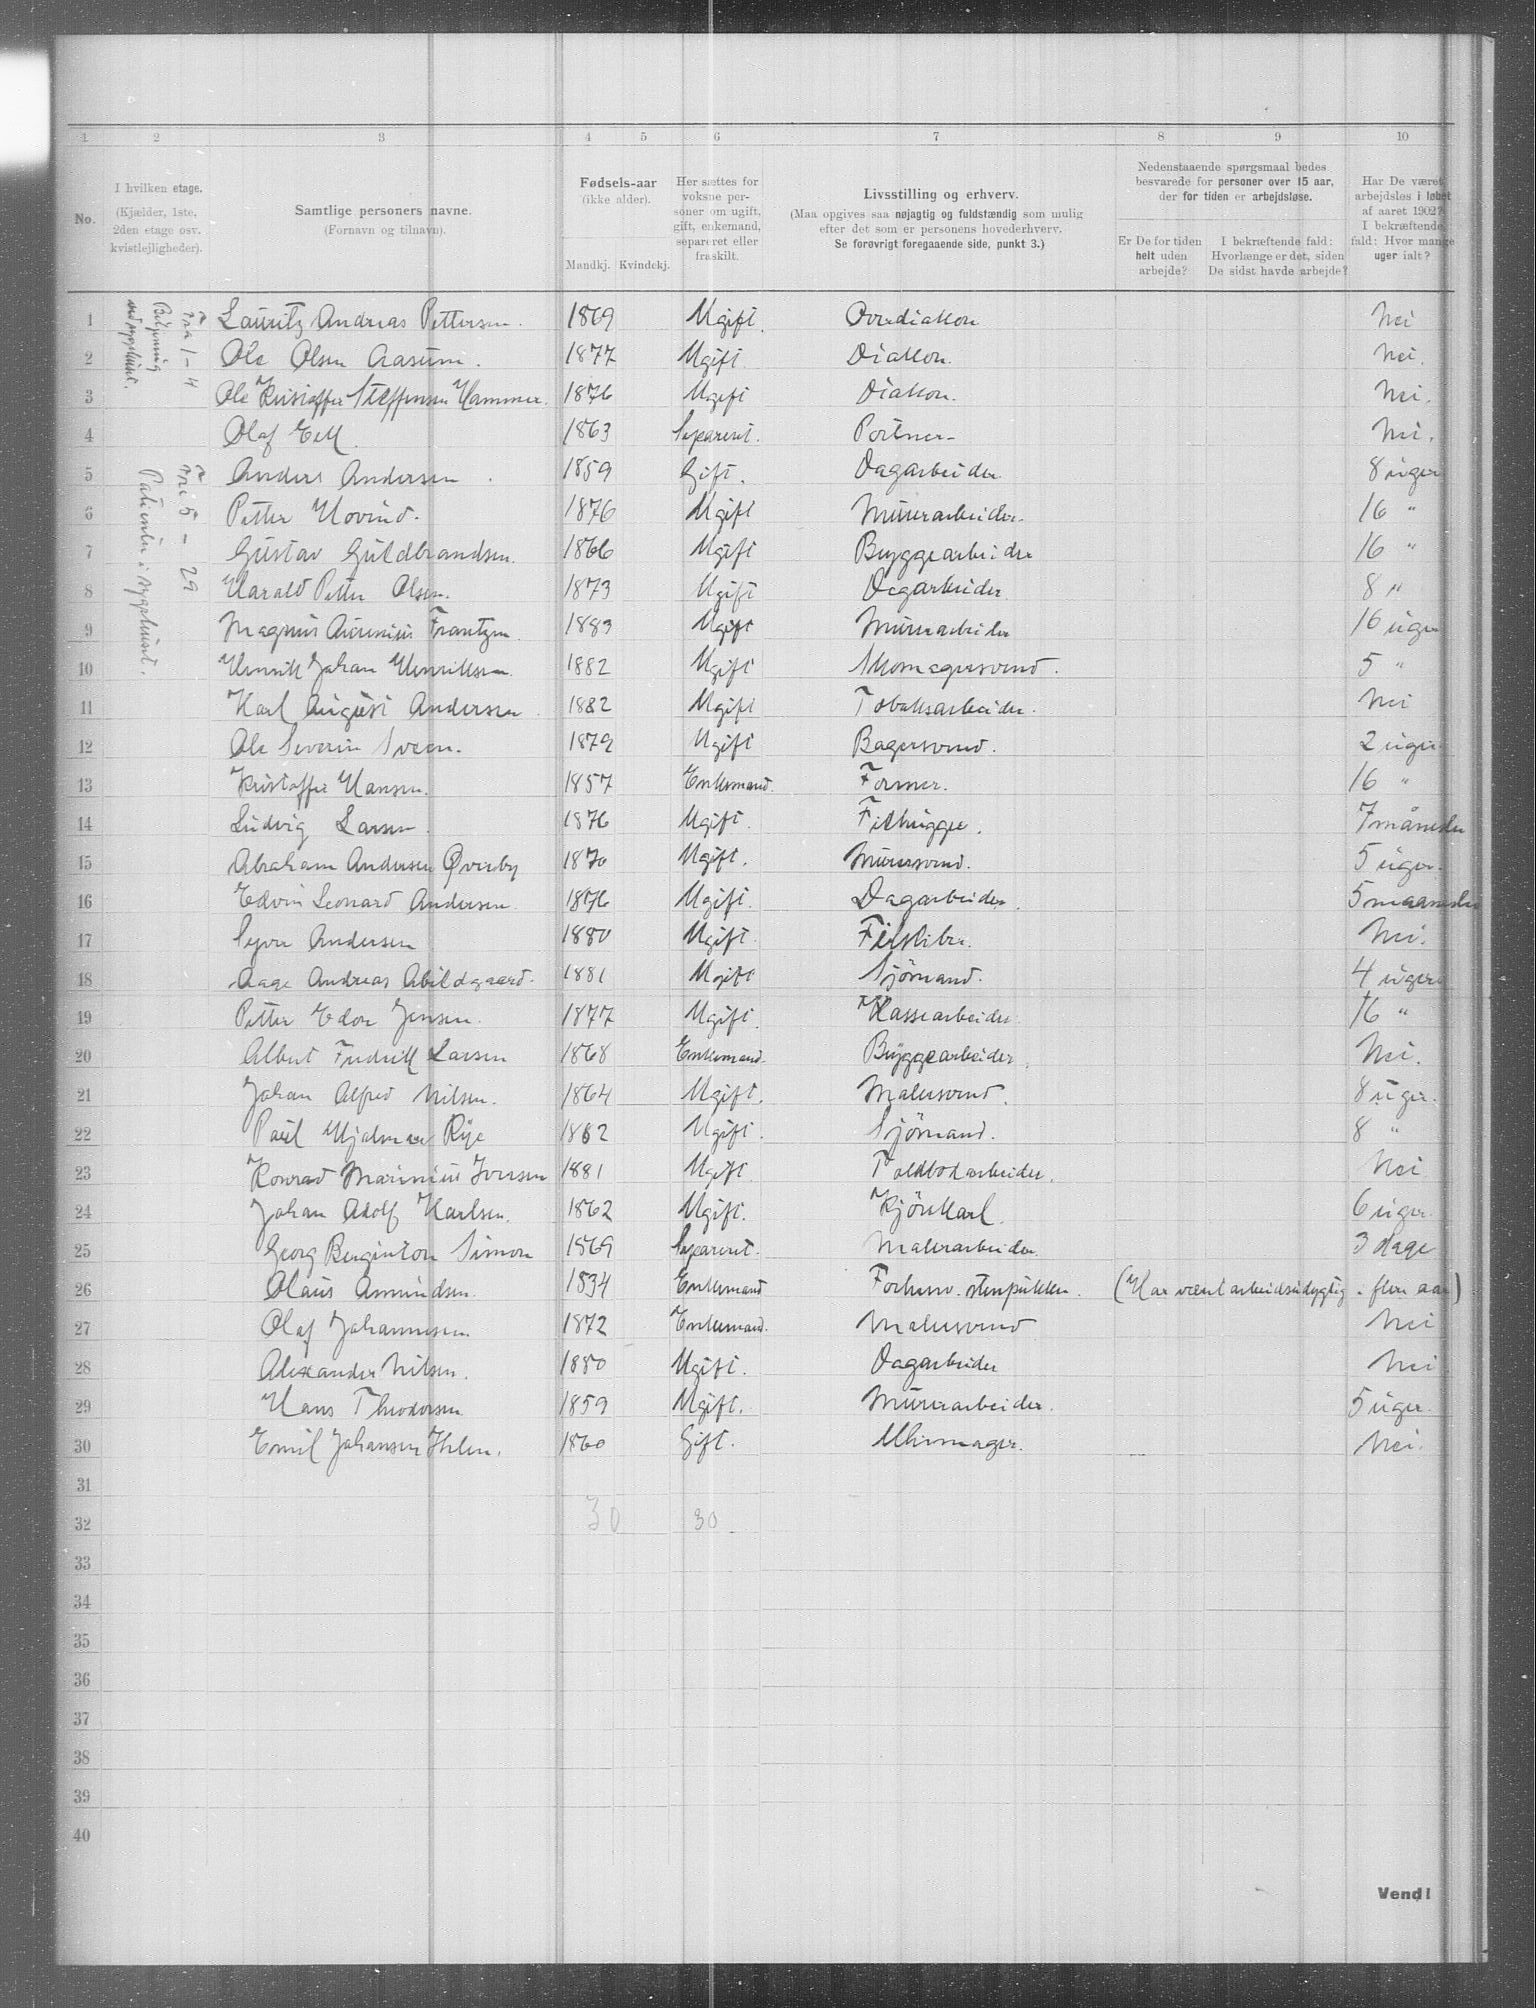 1 2 3 4 5 6 7 8 9 10
No.
I hvilken etage.
(Kjælder, 1ste,
2den etage osv.
kvistlejligheder).
Samtlige personers navne.
(Fornavn og tilnavn).
Fødsels-aar
(ikke alder).
Mandkj. Kvindekj.
Her sættes for
voksne per-
soner om ugift,
gift, enkemand,
separeret eller
fraskilt.
Livsstilling og erhverv.
(Maa opgives saa nøjagtig og fuldstændig som mulig
efter det som er personens hovederhverv.
Se forøvrigt foregaaende side, punkt 3.)
Nedenstaaende spørgsmaal bedes
besvarede for personer over 15 aar,
der for tiden er arbejdsløse.
Er De for tiden
helt uden
arbejde?
I bekræftende fald:
Hvorlænge er det, siden
De sidst havde arbejde?
Har De været
arbejdsløs i løbet
af aaret 1902?
I bekræftende
fald: Hvor mange
uger ialt?
Fra 1-4
Betjening
ved sygehuset.
1 Lauritz Andreas Pettersen. 1869 Ugift. Overdiakon Nei
2 Ole Olsen Aasum. 1877 Ugift. Diakon. Nei.
3 Ole Kristoffer Steffensen Hammer. 1876 Ugift Diakon. Nei.
4 Olaf Eek. 1863 Separert. Portner Nei.
Fra 5 - 29
Patienter i sygehuset.
5 Anders Andersen. 1859 Gift. Dagarbeider 8 uger
6 Petter Hovind. 1876 Ugift Murerarbeider. 16 "
7 Gustav Guldbrandsen. 1866 Ugift Byggearbeider 16 "
8 Harald Petter Olsen. 1873 Ugift Dagarbeider 8 "
9 Magnus Frantzen. 1883 Ugift Murerarbeider 16 uger
10 Henrik Johan Henriksen. 1882 Ugift Skomagersvend. 5 "
11 Karl August Andersen. 1882 Ugift Tobaksarbeider. Nei
12 Ole Severin Sveen. 1879 Ugift Bagersvend. 2 uger.
13 Kristoffer Hansen. 1857 Enkemand. Former. 16 "
14 Ludvig Larsen. 1876 Ugift. Filhugger. 7 måneder
15 Abraham Andersen Øverby 1870 Ugift. Murersvend. 5 uger.
16 Edvin Leonard Andersen. 1876 Ugift. Dagarbeider. 5 maaneder
17 Syver Andersen 1880 Ugift. Nei.
18 Aage Andreas Abildgaard. 1881 Ugift Sjömand. 4 uger
19 Petter Edor Jensen. 1877 Ugift. Kassearbeider. 16 "
20 Albert Fredrik Larsen 1868 Enkemand. Byggearbeider. Nei.
21 Johan Alfred Nilsen. 1864 Ugift. Malersvend. 8 uger.
22 Paul Hjalmar Rye 1862 Ugift. Sjömand. 8 "
23 Konrad Marinius Iversen 1881 Ugift. Toldbodarbeider. Nei
24 Johan Adolf Karlsen. 1862 Ugift. Kjörekarl. 6 uger.
25 Georg Berginton Simon 1869 Separert. Malerarbeider. 3 dage
26 Olaus Amundsen. 1834 Enkemand Forhenv. stenpukker. (Har vært arbeidsudygtig i flere aar)
27 Olaf Johannesen 1872 Enkemand. Malersvend Nei
28 Alexander Nilsen. 1880 Ugift. Dagarbeider Nei
29 Hans Theodorsen 1859 Ugift. Murerarbeider. 5 uger.
30 Emil Johansen Ihlen. 1860 Gift. Uhrmager. Nei.
31
32 30 30
33
34
35
36
37
38
39
40
Vend!